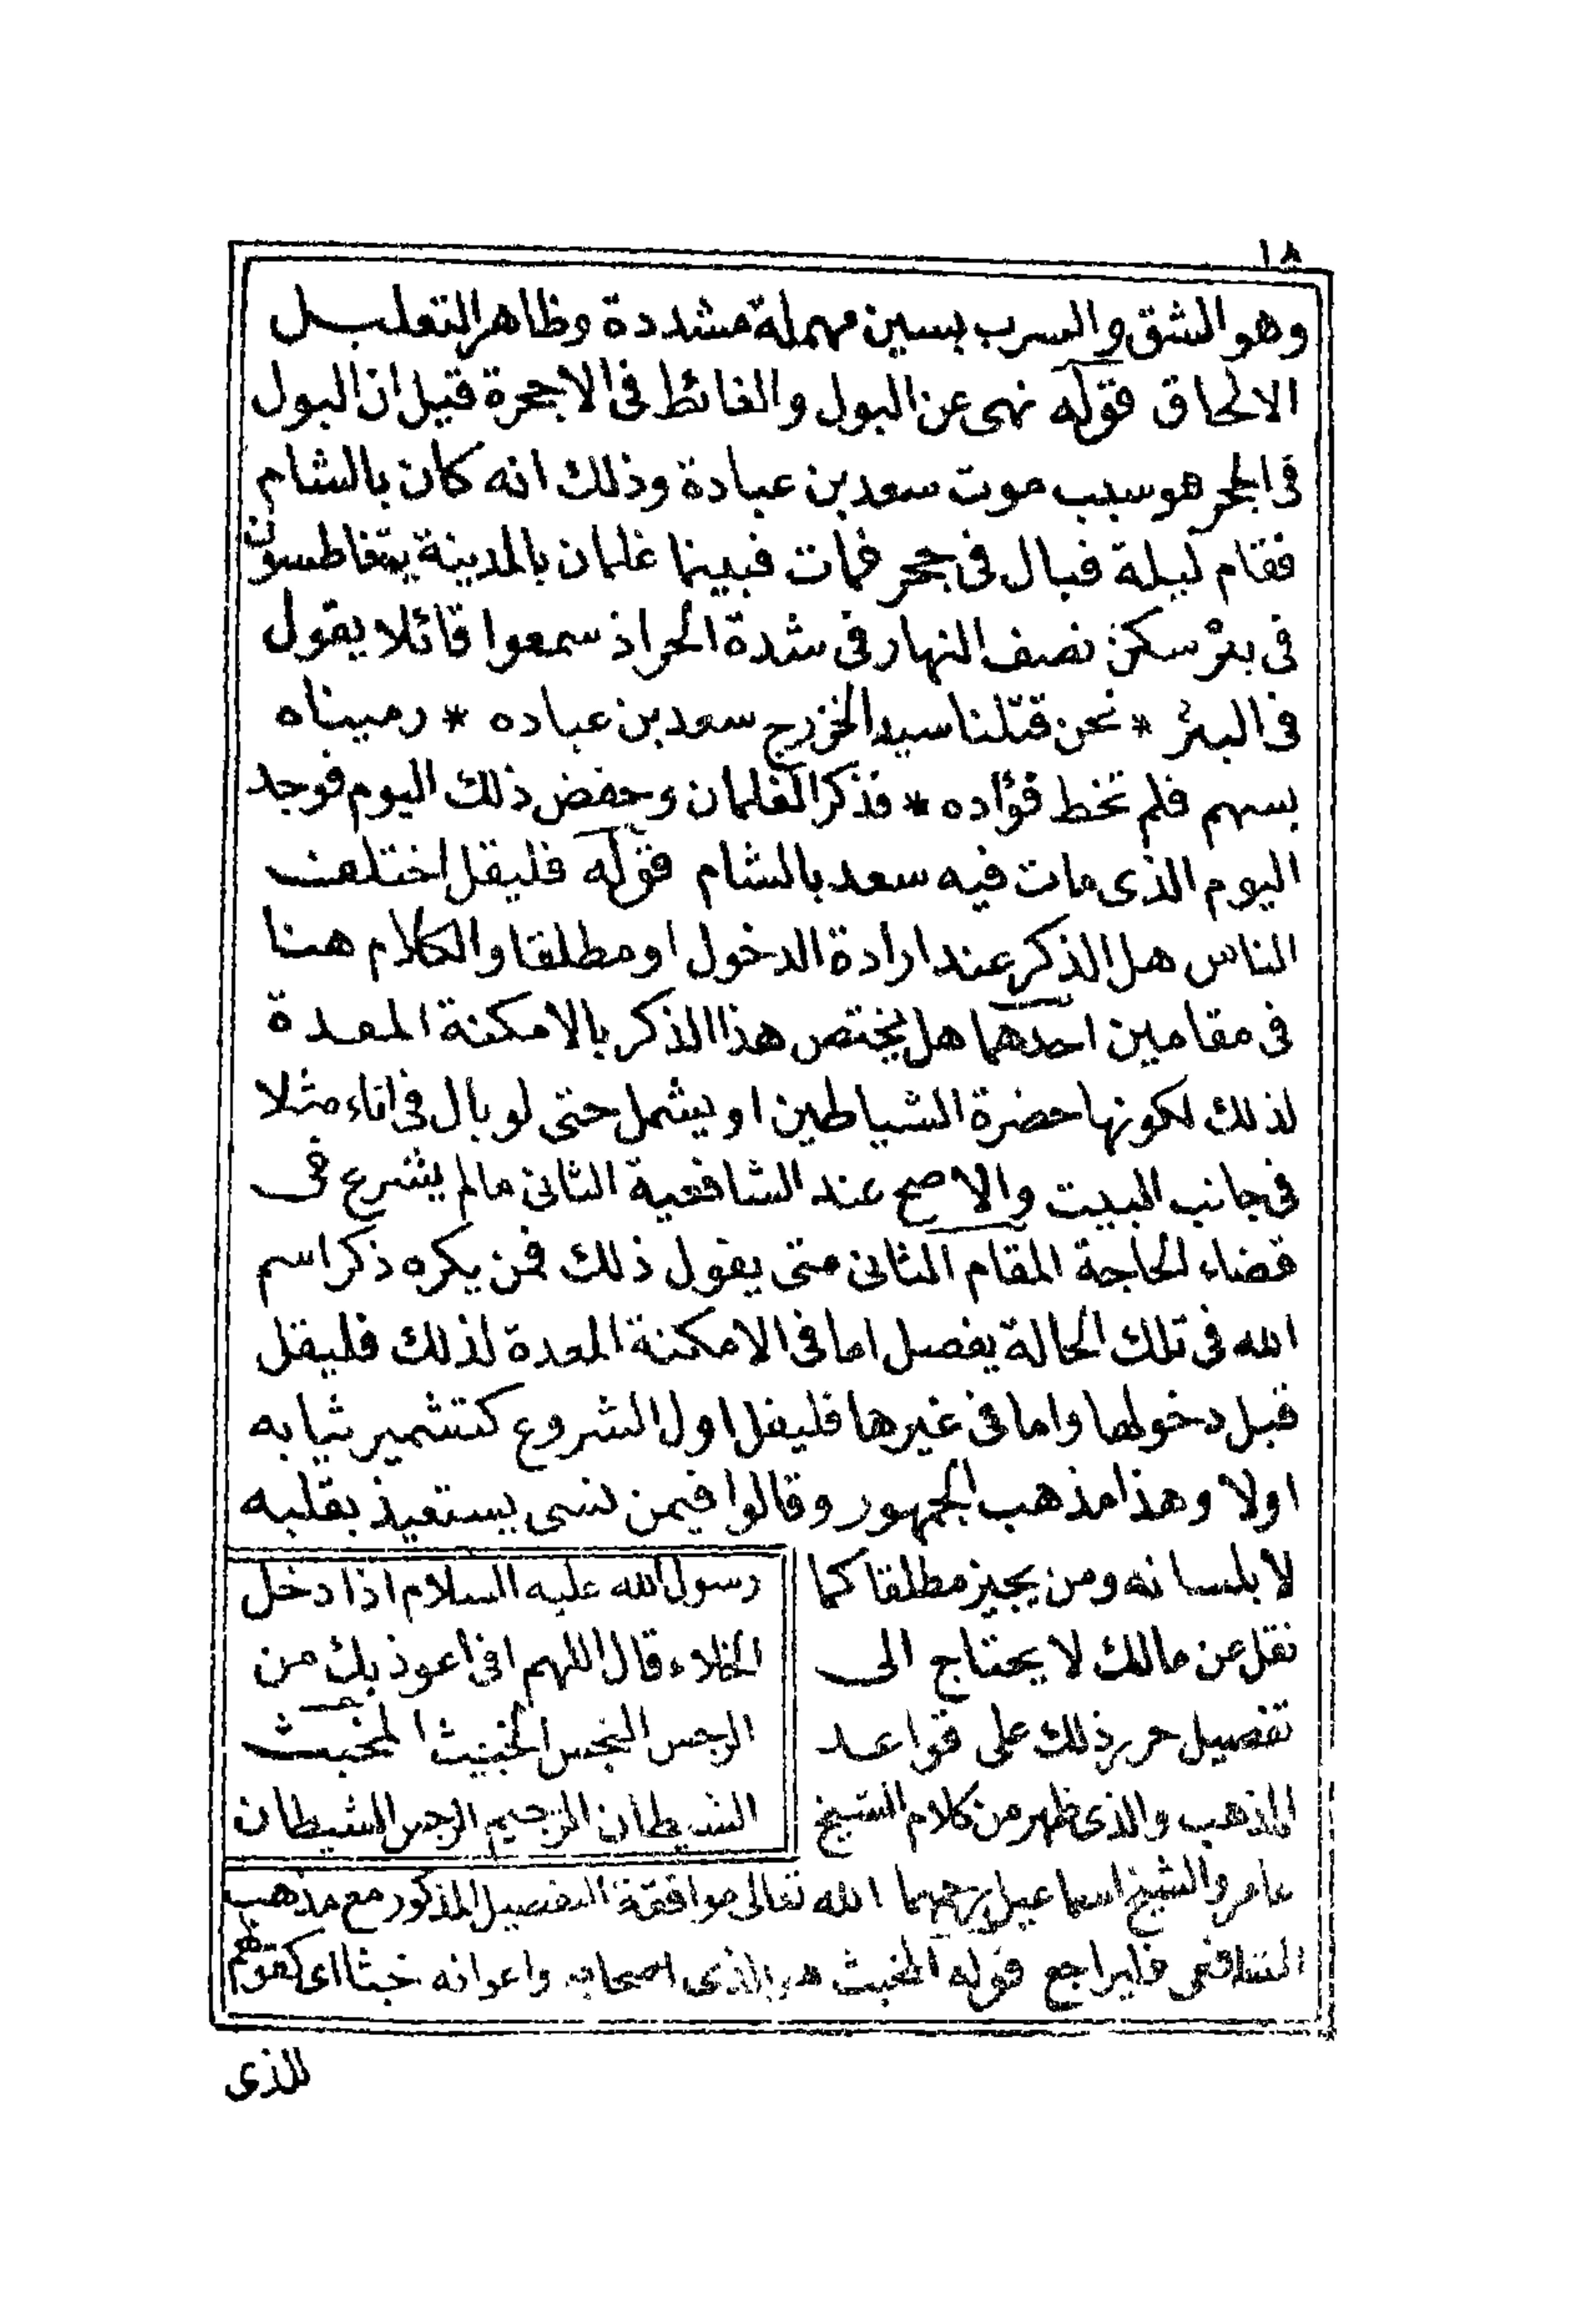 ١٨
وهو الشق والسرب بسين مهملة مشددة وظاهر التعليل
الالحاق قوله نهى عن البول والغائط فى الاجحرة قيل ان البول
فى الجحر هو سبب موت سعد بن عبادة وذلك انه كان بالشام
فقام ليلة فبال فى جحر فمات فبينما غلمان بالمدينة يتغاطسون
فى بئر سكن نصف النهار فى شدة الحر اذ سمعوا قائلا يقول
فى البئر * نحن قتلنا سيد الخزرج سعد بن عباده * رميناه
بسهم فلم تخط فؤاده * فذكر الغلمان وحفض ذلك اليوم فوجد
اليوم الذى مات فيه سعد بالشام قوله فليقل اختلفت
الناس هل الذكر عند ارادة الدخول او مطلقا والكلام هنا
فى مقامين احدهما هل يختص هذا الذكر بالامكنة المعدة
لذلك لكونها حضرة الشياطين او يشمل حتى لو بال فى اناء مثلا
فى جانب البيت والاصح عند الشافعية الثانى مالم يشرع فى
قضاء الحاجة المقام الثانى متى يقول ذلك فمن يكره ذكر اسم
الله فى تلك الحالة يفصل اما فى الامكنة المعدة لذلك فليقل
قبل دخولها واما فى غيرها فليقل اول الشروع كتشمير ثيابه
اولا وهذا مذهب الجمهور وقالوا فيمن نسى يستعيذ بقلبه
لا بلسانه ومن يجيز مطلقا كما
نقل عن مالك لا يحتاج الى
تفصيل حرر ذلك على قواعد
المذهب والذى ظهر من كلام الشيخ
رسول الله عليه السلام اذا دخل
الخلاء قال اللهم انى اعوذ بك من
الرجس النجس الخبيث المخبث
الشيطان الرجيم الرجس الشيطان
عامر والشيخ اسماعيل رحمهما الله تعالى موافقة التفصيل المذكور مع مذهب
الشافعى فليراجع قوله المخبث هو الذى اصحابه واعوانه خبثا اى كقولهم
للذى